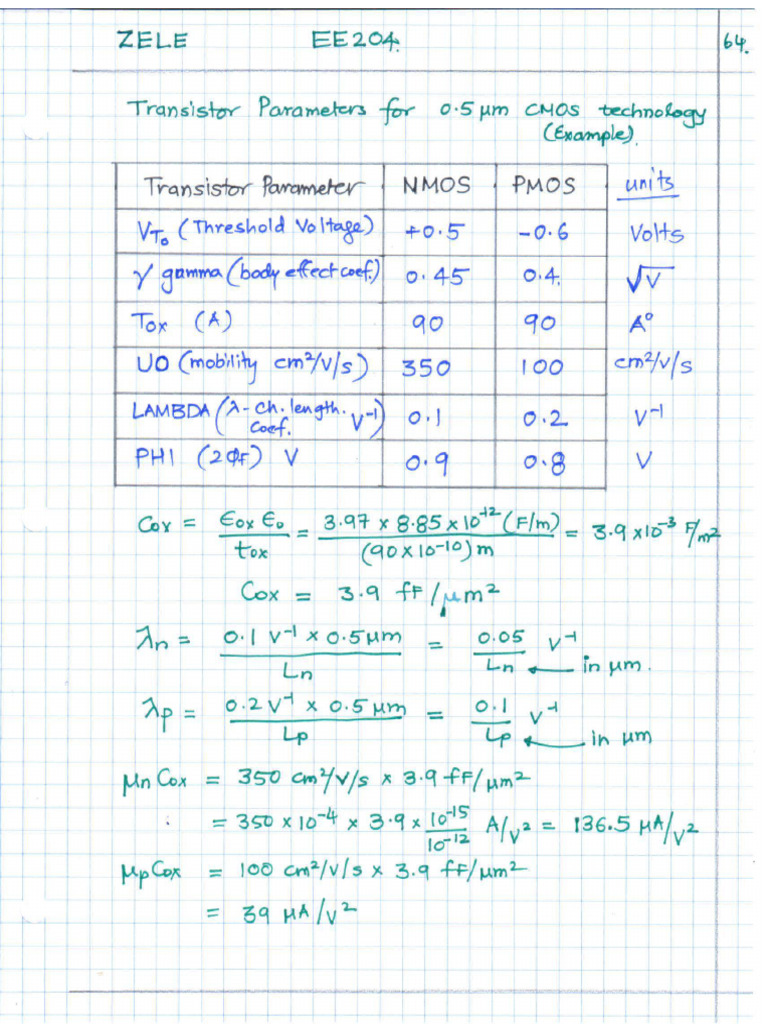 ZELE EE204. 64.
Transistor Parameters for 0.5 μm CMOS technology
(Example).
Transistor Parameter NMOS PMOS units
VTo (Threshold Voltage) +0.5 -0.6 Volts
γ gamma (body effect coef.) 0.45 0.4. √V
Tox (A) 90 90 A°
UO (mobility cm²/V/s) 350 100 cm²/V/s
LAMBDA (λ - ch. length. coef. V⁻¹) 0.1 0.2 V⁻¹
PHI (2ΦF) V 0.9 0.8 V
Cox = εox εo / tox = 3.97 × 8.85 × 10⁻¹² (F/m) / (90×10⁻¹⁰) m = 3.9 ×10⁻³ F/m²
Cox = 3.9 fF/μm²
λn = 0.1 V⁻¹ × 0.5 μm / Ln = 0.05 / Ln V⁻¹ ← in μm.
λp = 0.2 V⁻¹ × 0.5 μm / Lp = 0.1 / Lp V⁻¹ ← in μm
μn Cox = 350 cm²/V/s × 3.9 fF/μm²
= 350 × 10⁻⁴ × 3.9 × 10⁻¹⁵ / 10⁻¹² A/V² = 136.5 μA/V²
μp Cox = 100 cm²/V/s × 3.9 fF/μm²
= 39 μA/V²